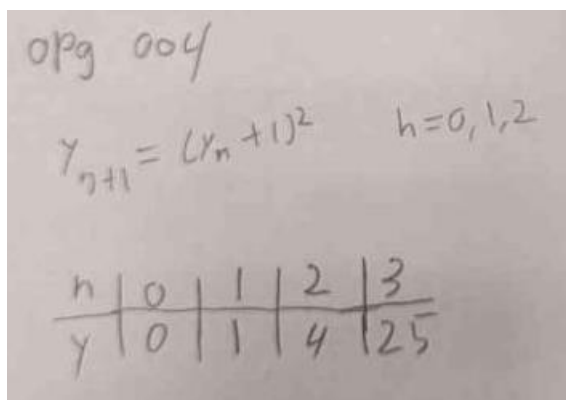 opg 004
y_{n+1} = (y_n + 1)^2 n=0,1,2
n | 0 | 1 | 2 | 3
y | 0 | 1 | 4 | 25